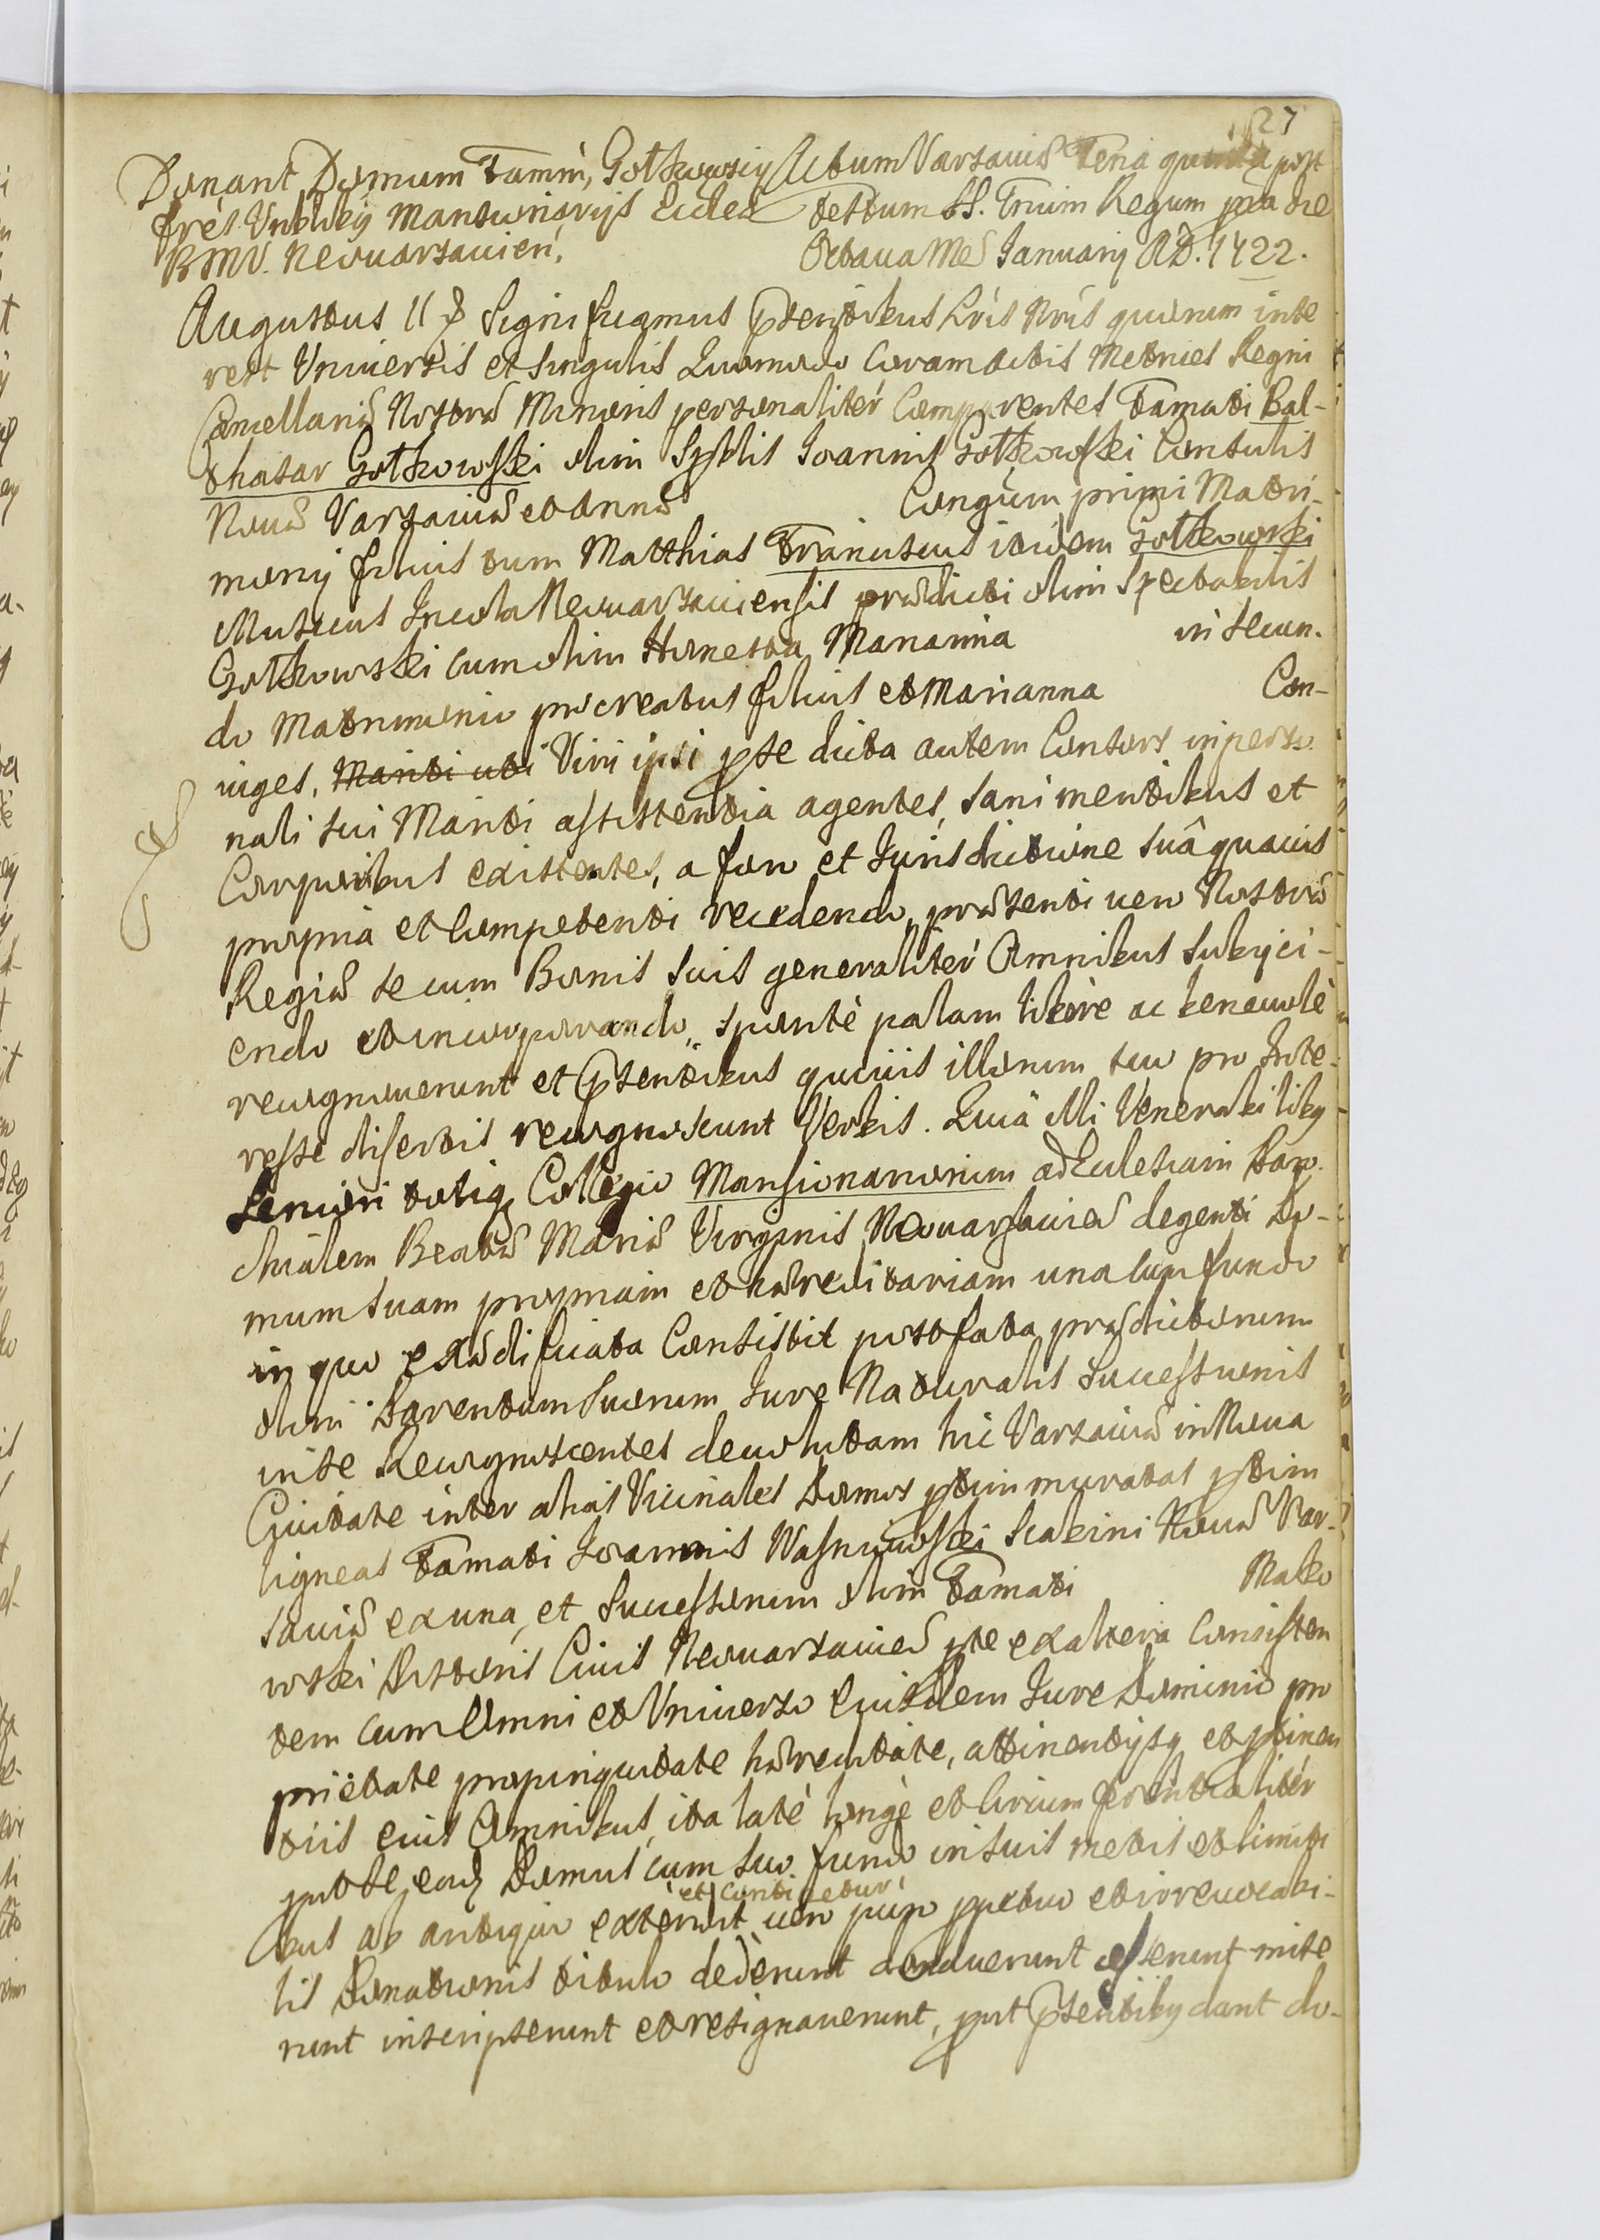 127
Donant Domum Famti, Gotkowscy Actum Varsaviæ Feria quinta post
frēs Vnblibȳ Mansionarijs Eccleæ Festum SS. Trium Regum
BMV. Neovarsavien. Octava Mē Januarij AD. 1722.
Augustus II Significamus Pntibus Lrīs Nrīs quorum inte
rest Universis et singulis Quomodo Coram Actis Metrices Regni
Cancellariæ Nostræ Minoris personalitèr Comparentes Famati Bal-
thasar Gotkowski olim Spblis Joannis Gotkowski Consulis
Novæ Varsaviæ et Annæ Conjugum primi Matri-
monij filius tum Matthias Franciscus itidem Gotkowski
Musicus Incola Neovarsaviensis prædicti olim Spectabilis
Gotkowski cum olim Honesta Marianna in secun-
do Matrimonio procreatus filius et Marianna Con-
iuges, Mariti uti Viri ipsi p se dicta autem Consors in perso
nali sui Mariti assistentia agentes, sani mentibus et
Corporibus existentes, a foro et Jurisdictione suâ quavis
propria et competenti recedendo, præsenti vero Nostræ
Regiæ se cum Bonis suis generalitèr Omnibus subijci-
endo et incorporando, spontè palam liberè ac benevolè
recognoverunt et Pntibus quivis illorum suo pro Inte-
resse disertis recognoscunt Verbis. Quia Illi Venerabilibȳ
Seniori totiq Collegio Mansionariorum ad Eclesiam Paro-
chialem Beatæ Mariæ Virginis Neovarsaviæ degenti Do-
mum suam propriam et hæreditariam una cum fundo
in quo exædificata Consistit post fata prædictorum
olim Parentum suorum Jure Naturalis Successionis
in se Recognoscentes devolutam hic Varsaviæ in Nova
Civitate inter alias Vicinales Domos ptim muratas ptim
ligneas Famati Joannis Wasniowski Scabini Novæ Var-
saviæ ex una, et Successorum olim Famati Mako
wski Pistoris Civis Neovarsavieñ pte ex altera Consisten
tem cum Omni et Universo Eiusdem Jure Dominio pro
prietate propinquitate hæreditate, attinentijsq et ptinen
tiis eius Omnibus, ita latè longè et circumferentialitèr
prout se eadē Domus cum suo fundo in suis metis et limiti
et continetur
bus ab antiquo extendit vero puro ppetuo et irrevocabi-
lis Donationis titulo dederunt donaverunt cesserunt inscte
runt inscripserunt et resignaverunt, prout Pntibȳ dant do-